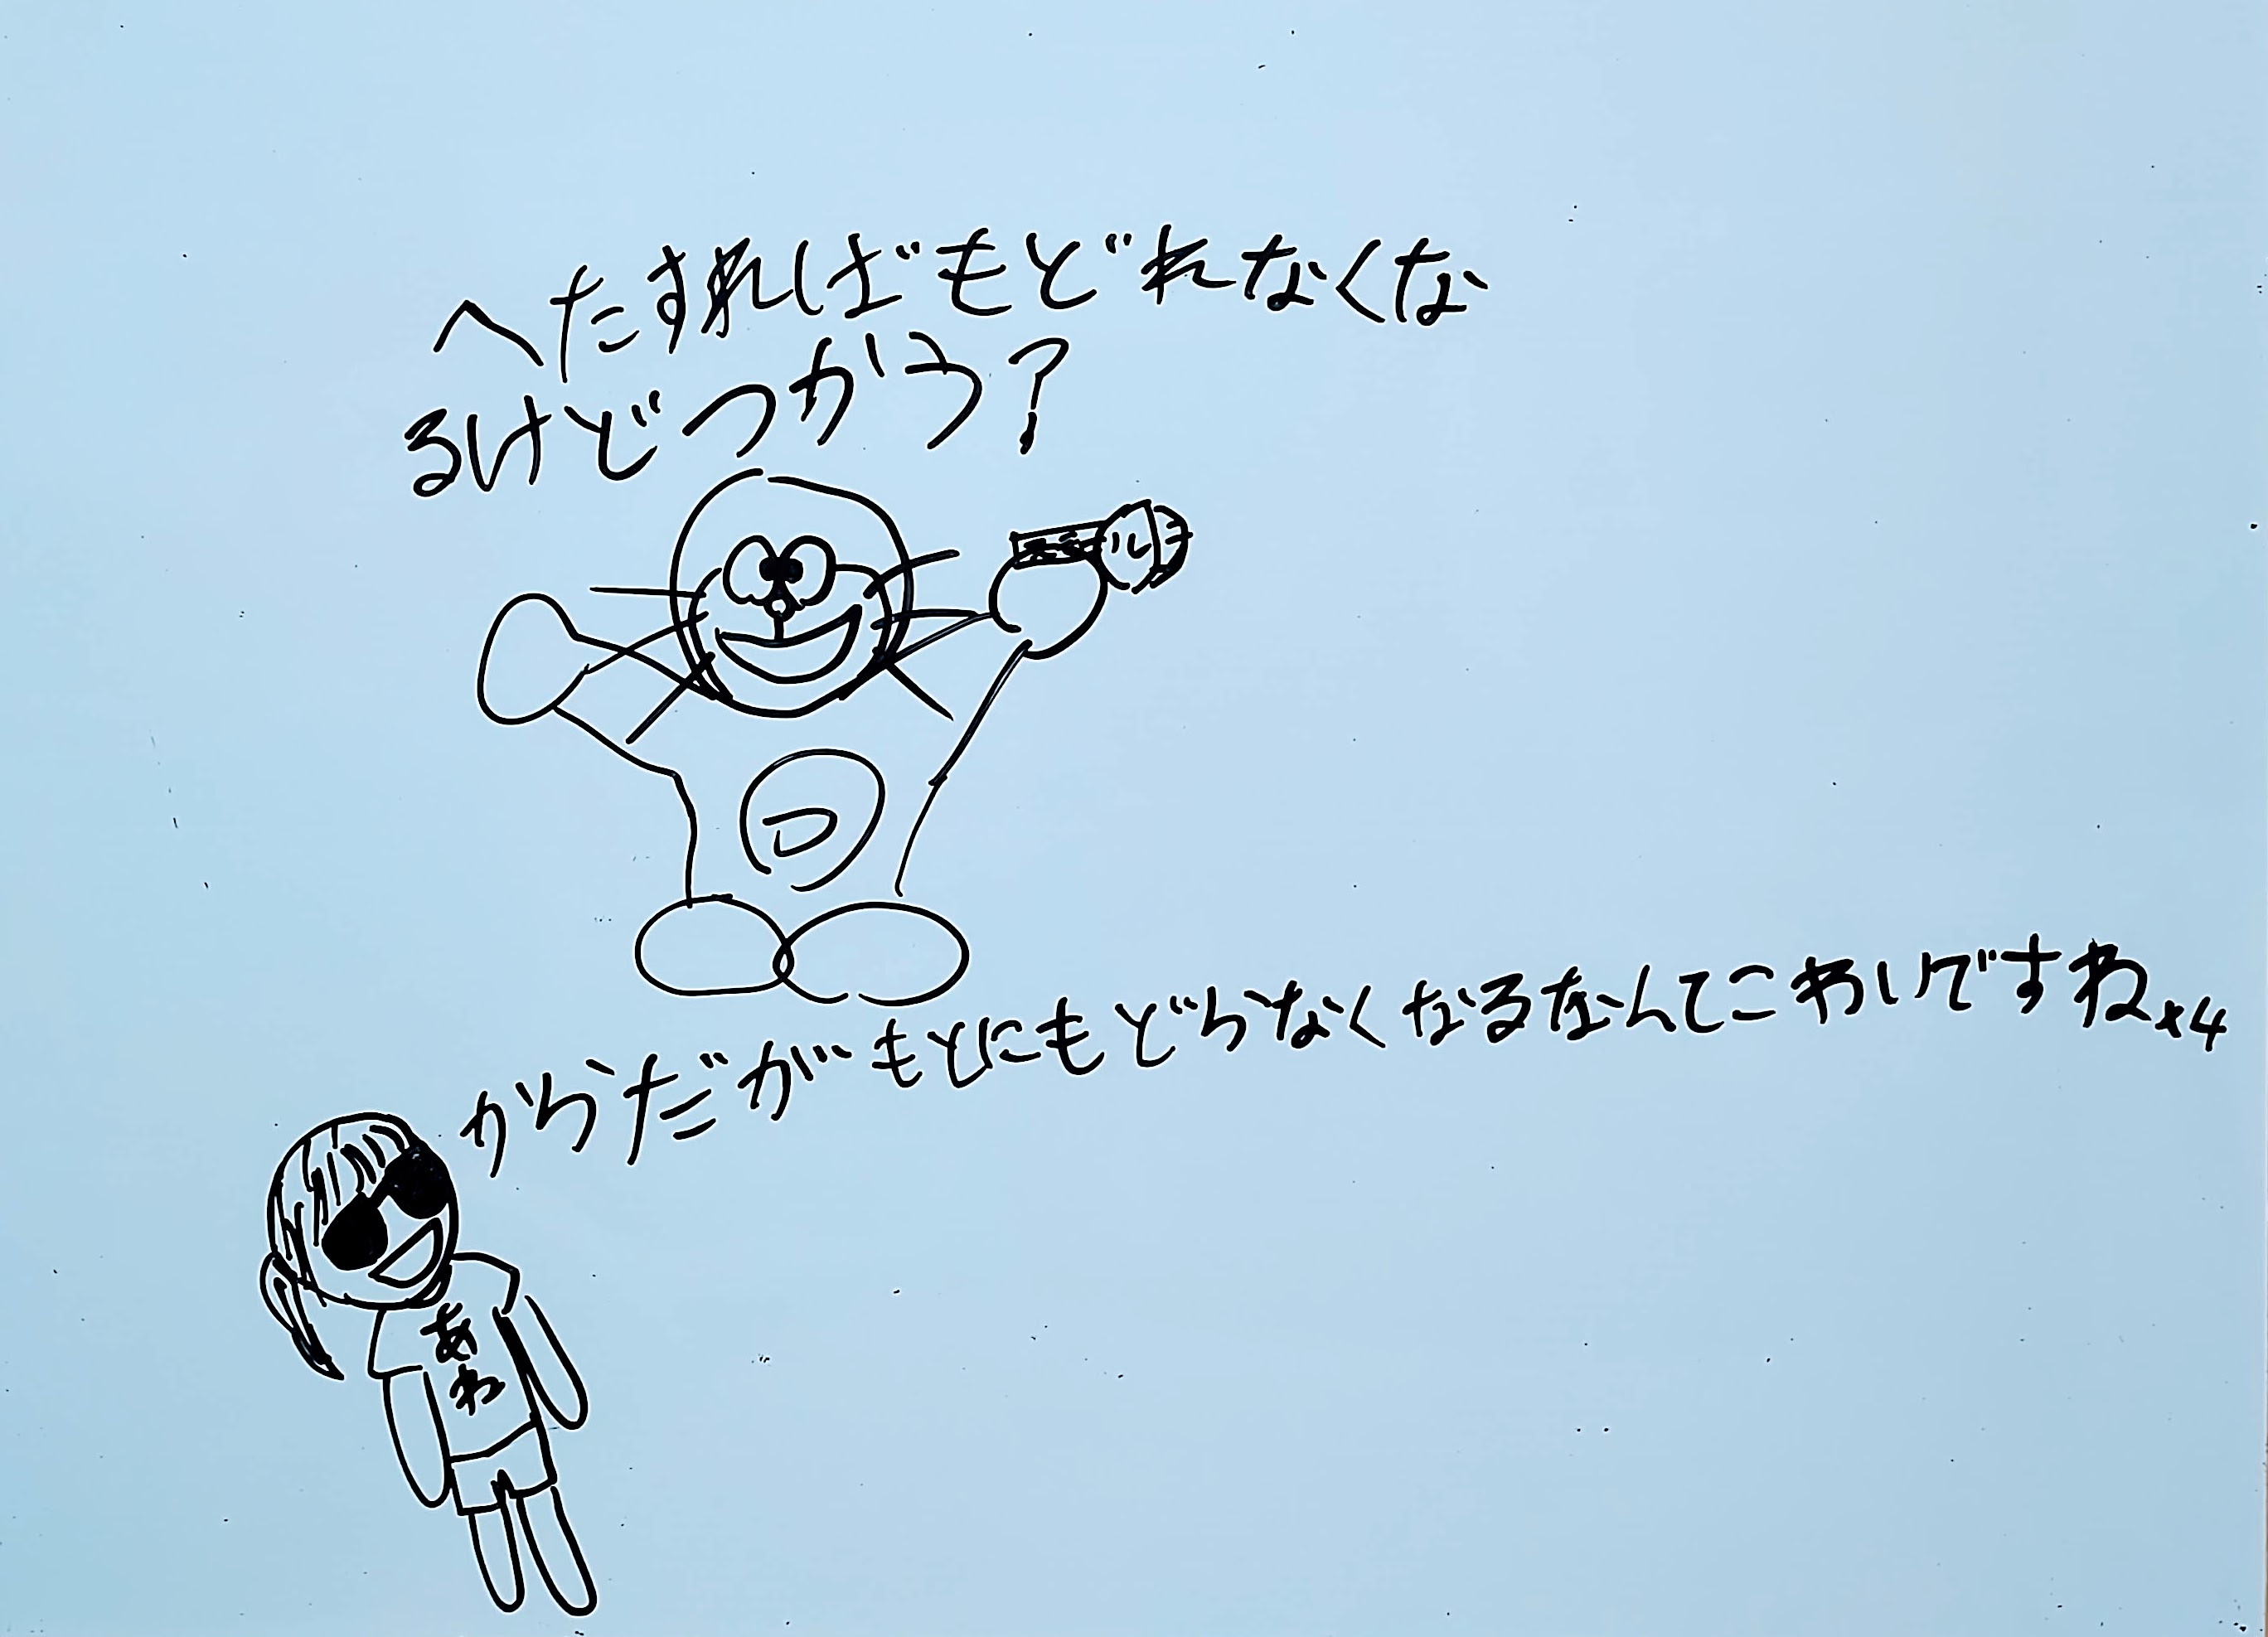 へたすればもどれなくな
るけどつかう？
からだがもとにもどらなくなるなんてこわいですね×4
あ
わ